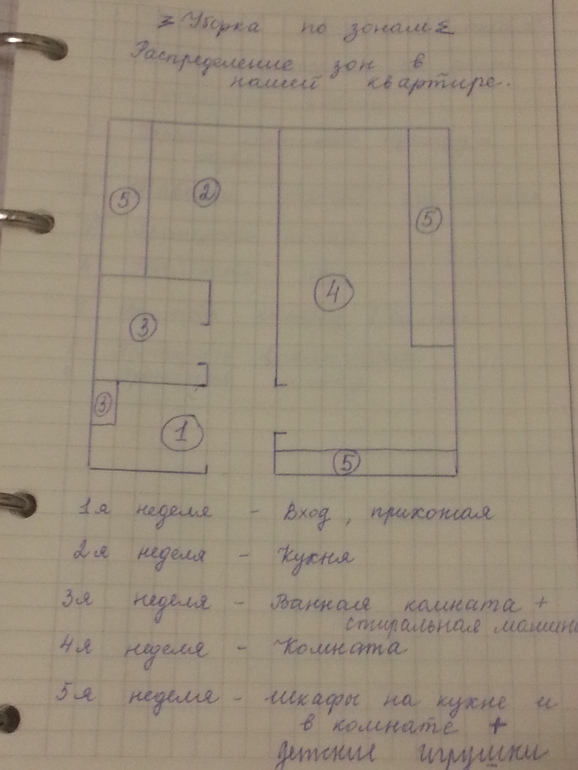 Уборка по зонам
Распределение зон в
нашей квартире.
5
2
5
4
3
3
1
5
1я неделя - Вход, прихожая
2я неделя - Кухня
3я неделя - Ванная комната +
стиральная машина
4я неделя - Комната
5я неделя - шкафы на кухне и
в комнате +
детские игрушки